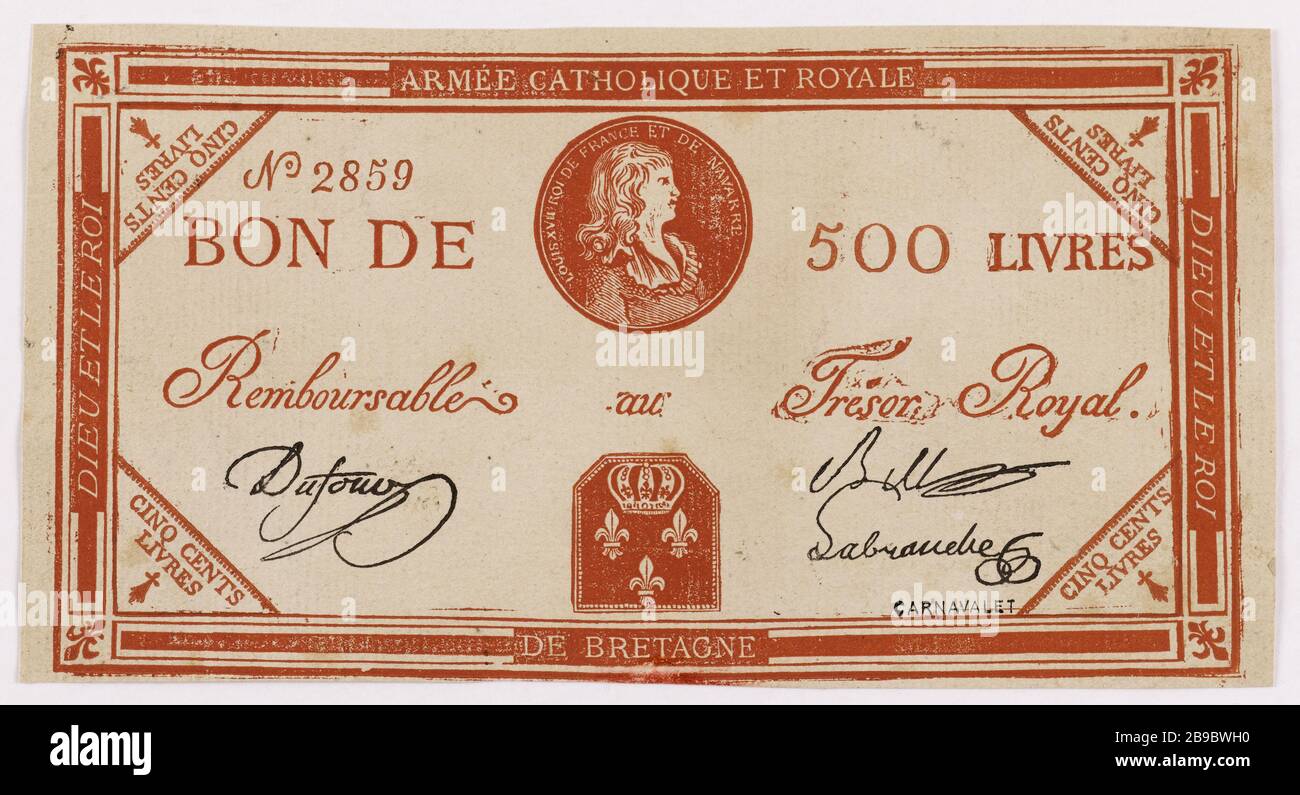 ARMÉE CATHOLIQUE ET ROYALE
CINQ CENTS
LIVRES
CINQ CENTS
LIVRES
No 2859
LOUIS XVII ROI DE FRANCE ET DE NAVARRE
BON DE 500 LIVRES
DIEU ET LE ROI
DIEU ET LE ROI
Remboursable au Trésor Royal.
Dufour
Labranche
CINQ CENTS
LIVRES
CINQ CENTS
LIVRES
CARNAVALET
DE BRETAGNE
alamy
Image ID: 2B9BWH0
www.alamy.com